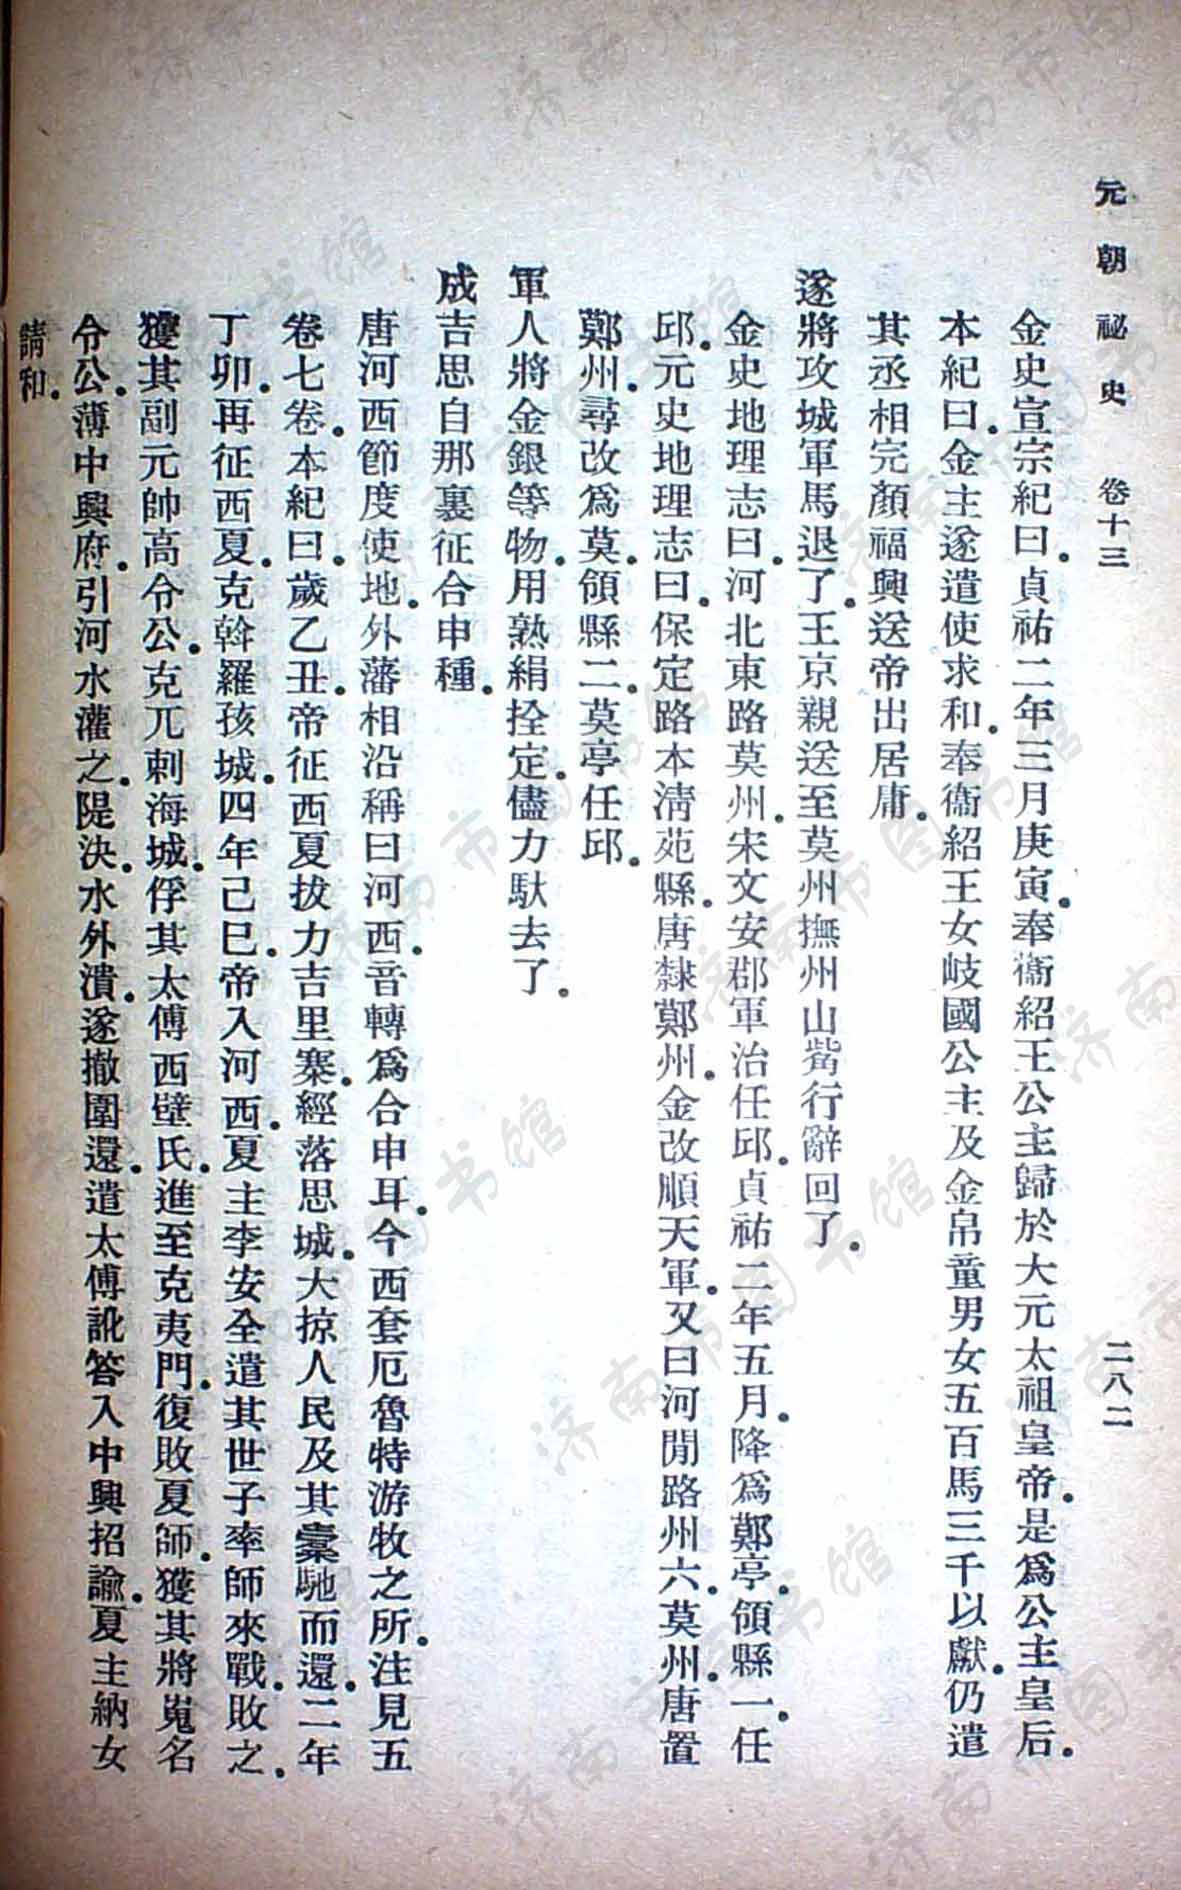 元朝祕史　卷十三　二八二
金史宣宗紀曰。貞祐二年三月庚寅。奉衞紹王公主歸於大元太祖皇帝。是爲公主皇后。
本紀曰。金主遂遣使求和。奉衞紹王女岐國公主及金帛童男女五百馬三千以獻。仍遣
其丞相完顏福興送帝出居庸。
遂將攻城軍馬退了。王京親送至莫州撫州山觜行辭回了。
金史地理志曰。河北東路莫州。宋文安郡軍治任邱。貞祐二年五月。降爲鄭亭。領縣一。任
邱。元史地理志曰。保定路本淸苑縣。唐隸鄭州。金改順天軍。又曰河閒路州六。莫州。唐置
鄭州。尋改爲莫。領縣二。莫亭任邱。
軍人將金銀等物。用熟絹拴定。儘力馱去了。
成吉思自那裏征合申種。
唐河西節度使地。外藩相沿稱曰河西。音轉爲合申耳。今西套厄魯特游牧之所。注見五
卷七卷。本紀曰。歲乙丑。帝征西夏拔力吉里寨。經落思城。大掠人民及其橐馳而還。二年
丁卯。再征西夏。克斡羅孩城。四年己巳。帝入河西。夏主李安全遣其世子率師來戰。敗之。
獲其副元帥高令公。克兀剌海城。俘其太傅西壁氏。進至克夷門。復敗夏師。獲其將嵬名
令公。薄中興府。引河水灌之。隄決。水外潰。遂撤圍還。遣太傅訛答入中興招諭。夏主納女
請和。